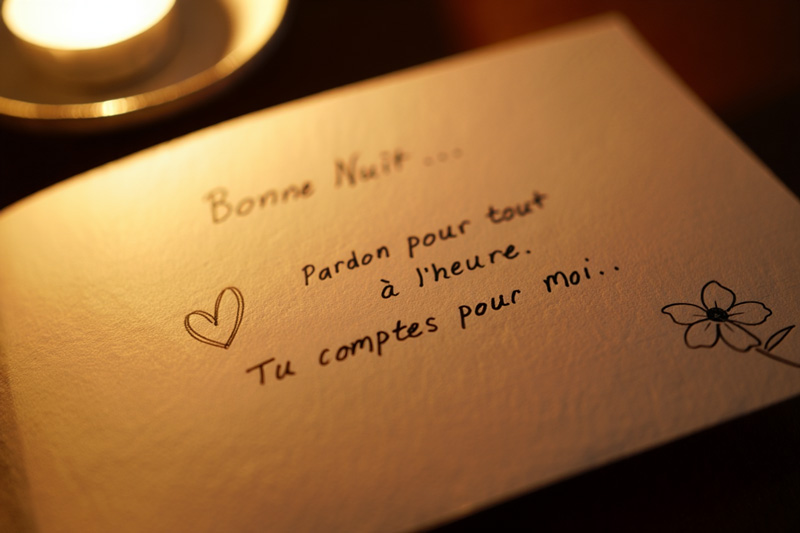 Bonne Nuit...
Pardon pour tout
à l'heure.
Tu comptes pour moi..